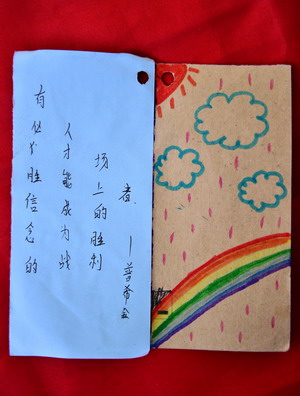 有必胜信念的
人才能成为战
场上的胜利
者.
—普希金